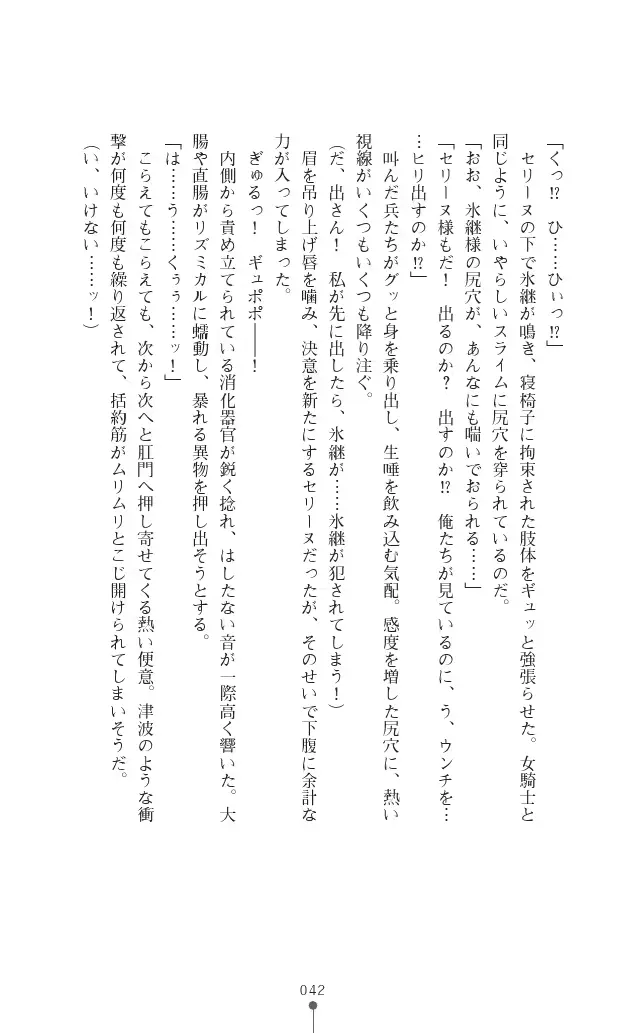 「くっ!?　ひ……ひぃっ!?」
　セリーヌの下で氷継が鳴き、寝椅子に拘束された肢体をギュッと強張らせた。女騎士と
同じように、いやらしいスライムに尻穴を穿られているのだ。
「おお、氷継様の尻穴が、あんなにも喘いでおられる……」
「セリーヌ様もだ！　出るのか？　出すのか!?　俺たちが見ているのに、う、ウンチを…
…ヒリ出すのか!?」
　叫んだ兵たちがグッと身を乗り出し、生唾を飲み込む気配。感度を増した尻穴に、熱い
視線がいくつもいくつも降り注ぐ。
（だ、出さん！　私が先に出したら、氷継が……氷継が犯されてしまう！）
　眉を吊り上げ唇を噛み、決意を新たにするセリーヌだったが、そのせいで下腹に余計な
力が入ってしまった。
　ぎゅるっ！　ギュポポ――！
　内側から責め立てられている消化器官が鋭く捻れ、はしたない音が一際高く響いた。大
腸や直腸がリズミカルに蠕動し、暴れる異物を押し出そうとする。
「は……う……くぅぅ……ッ！」
　こらえてもこらえても、次から次へと肛門へ押し寄せてくる熱い便意。津波のような衝
撃が何度も何度も繰り返されて、括約筋がムリムリとこじ開けられてしまいそうだ。
（い、いけない……ッ！）
042